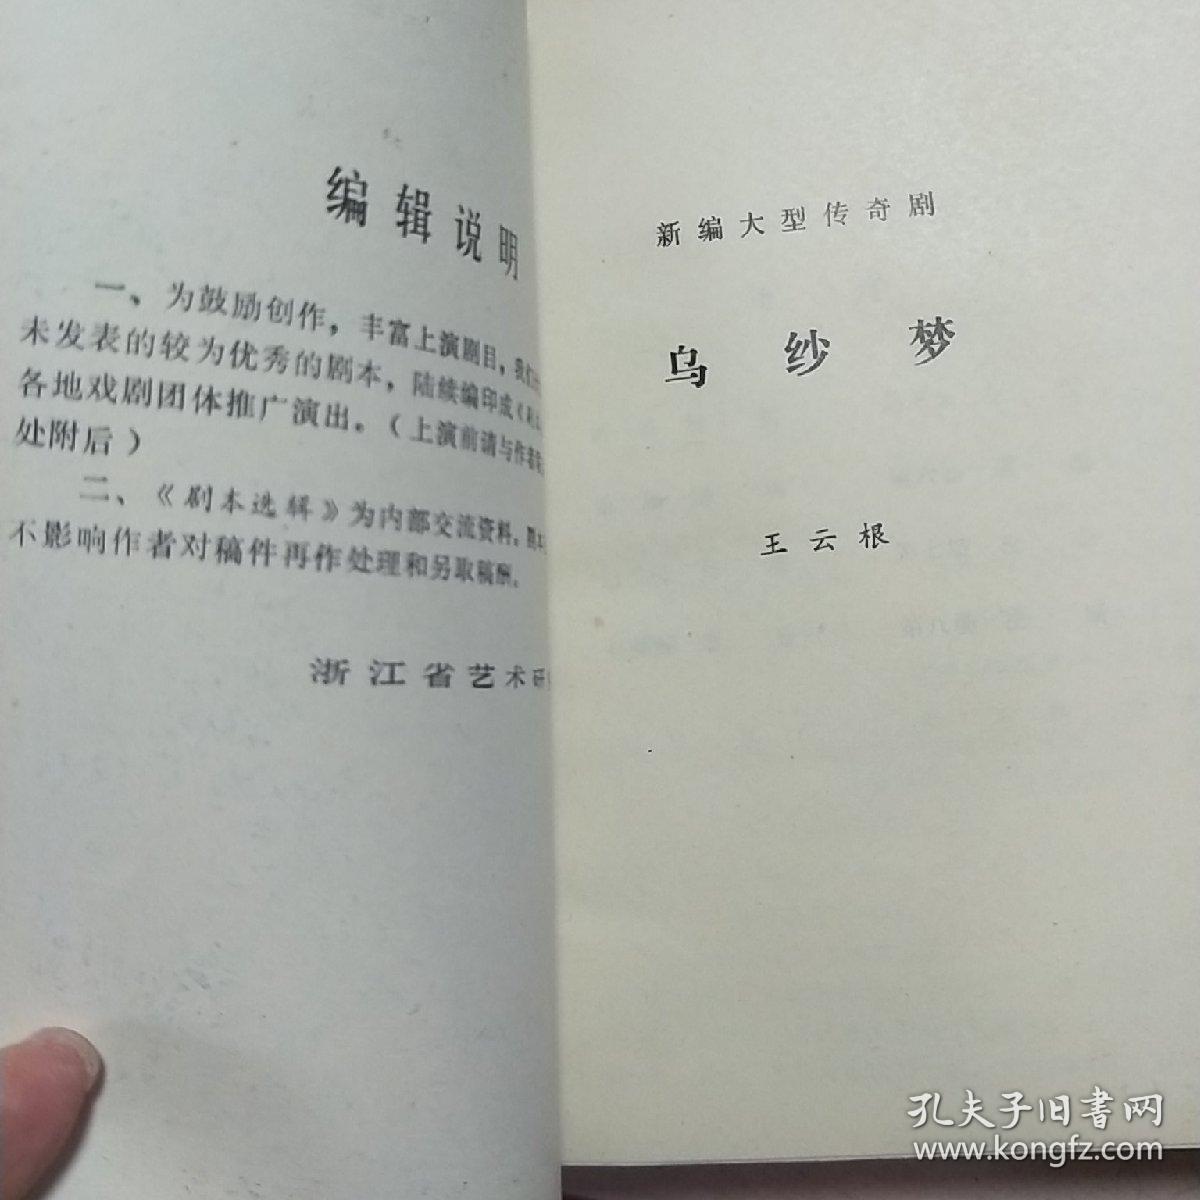 编辑说明
一、为鼓励创作，丰富上演剧目，我们
未发表的较为优秀的剧本，陆续编印成《剧本
各地戏剧团体推广演出。（上演前请与作者
处附后）
二、《剧本选辑》为内部交流资料。
不影响作者对稿件再作处理和另取稿酬。
浙江省艺术研
新编大型传奇剧
乌纱梦
王云根
孔夫子旧书网
www.kongfz.com